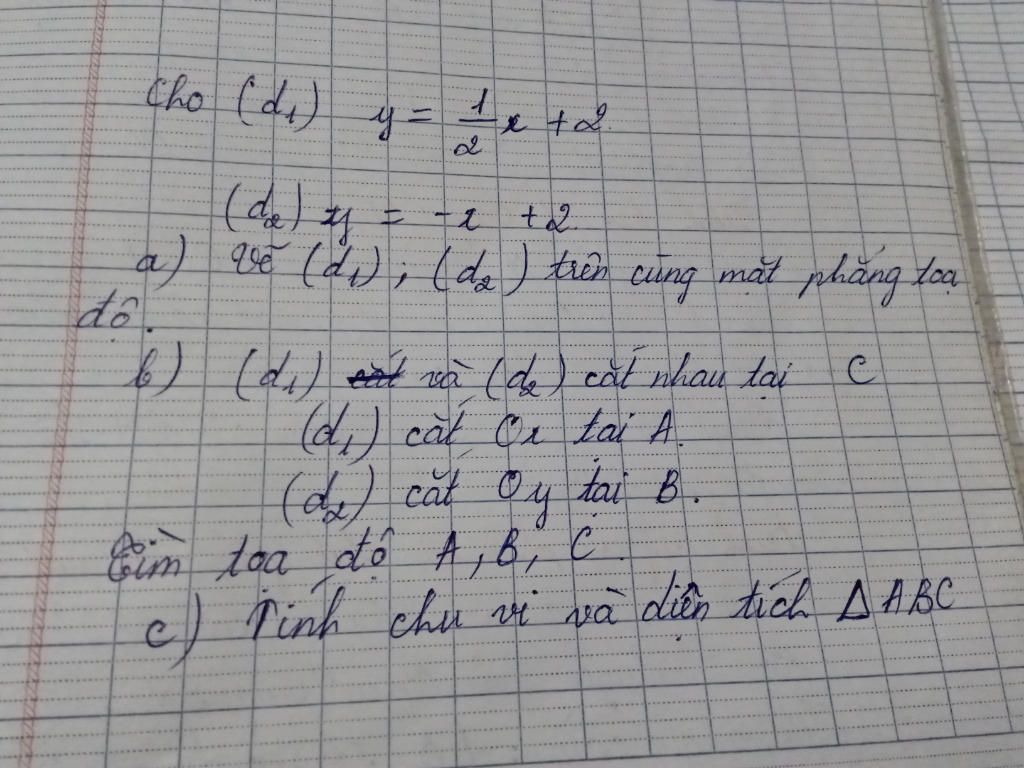 Cho (d₁) y = 1/2 x + 2.
(d₂) y = -x + 2.
a) Vẽ (d₁) ; (d₂) trên cùng mặt phẳng toạ
độ.
b) (d₁) cắt và (d₂) cắt nhau tại C
(d₁) cắt Ox tại A.
(d₂) cắt Oy tại B.
Tìm tọa độ A, B, C.
c) Tính chu vi và diện tích Δ ABC